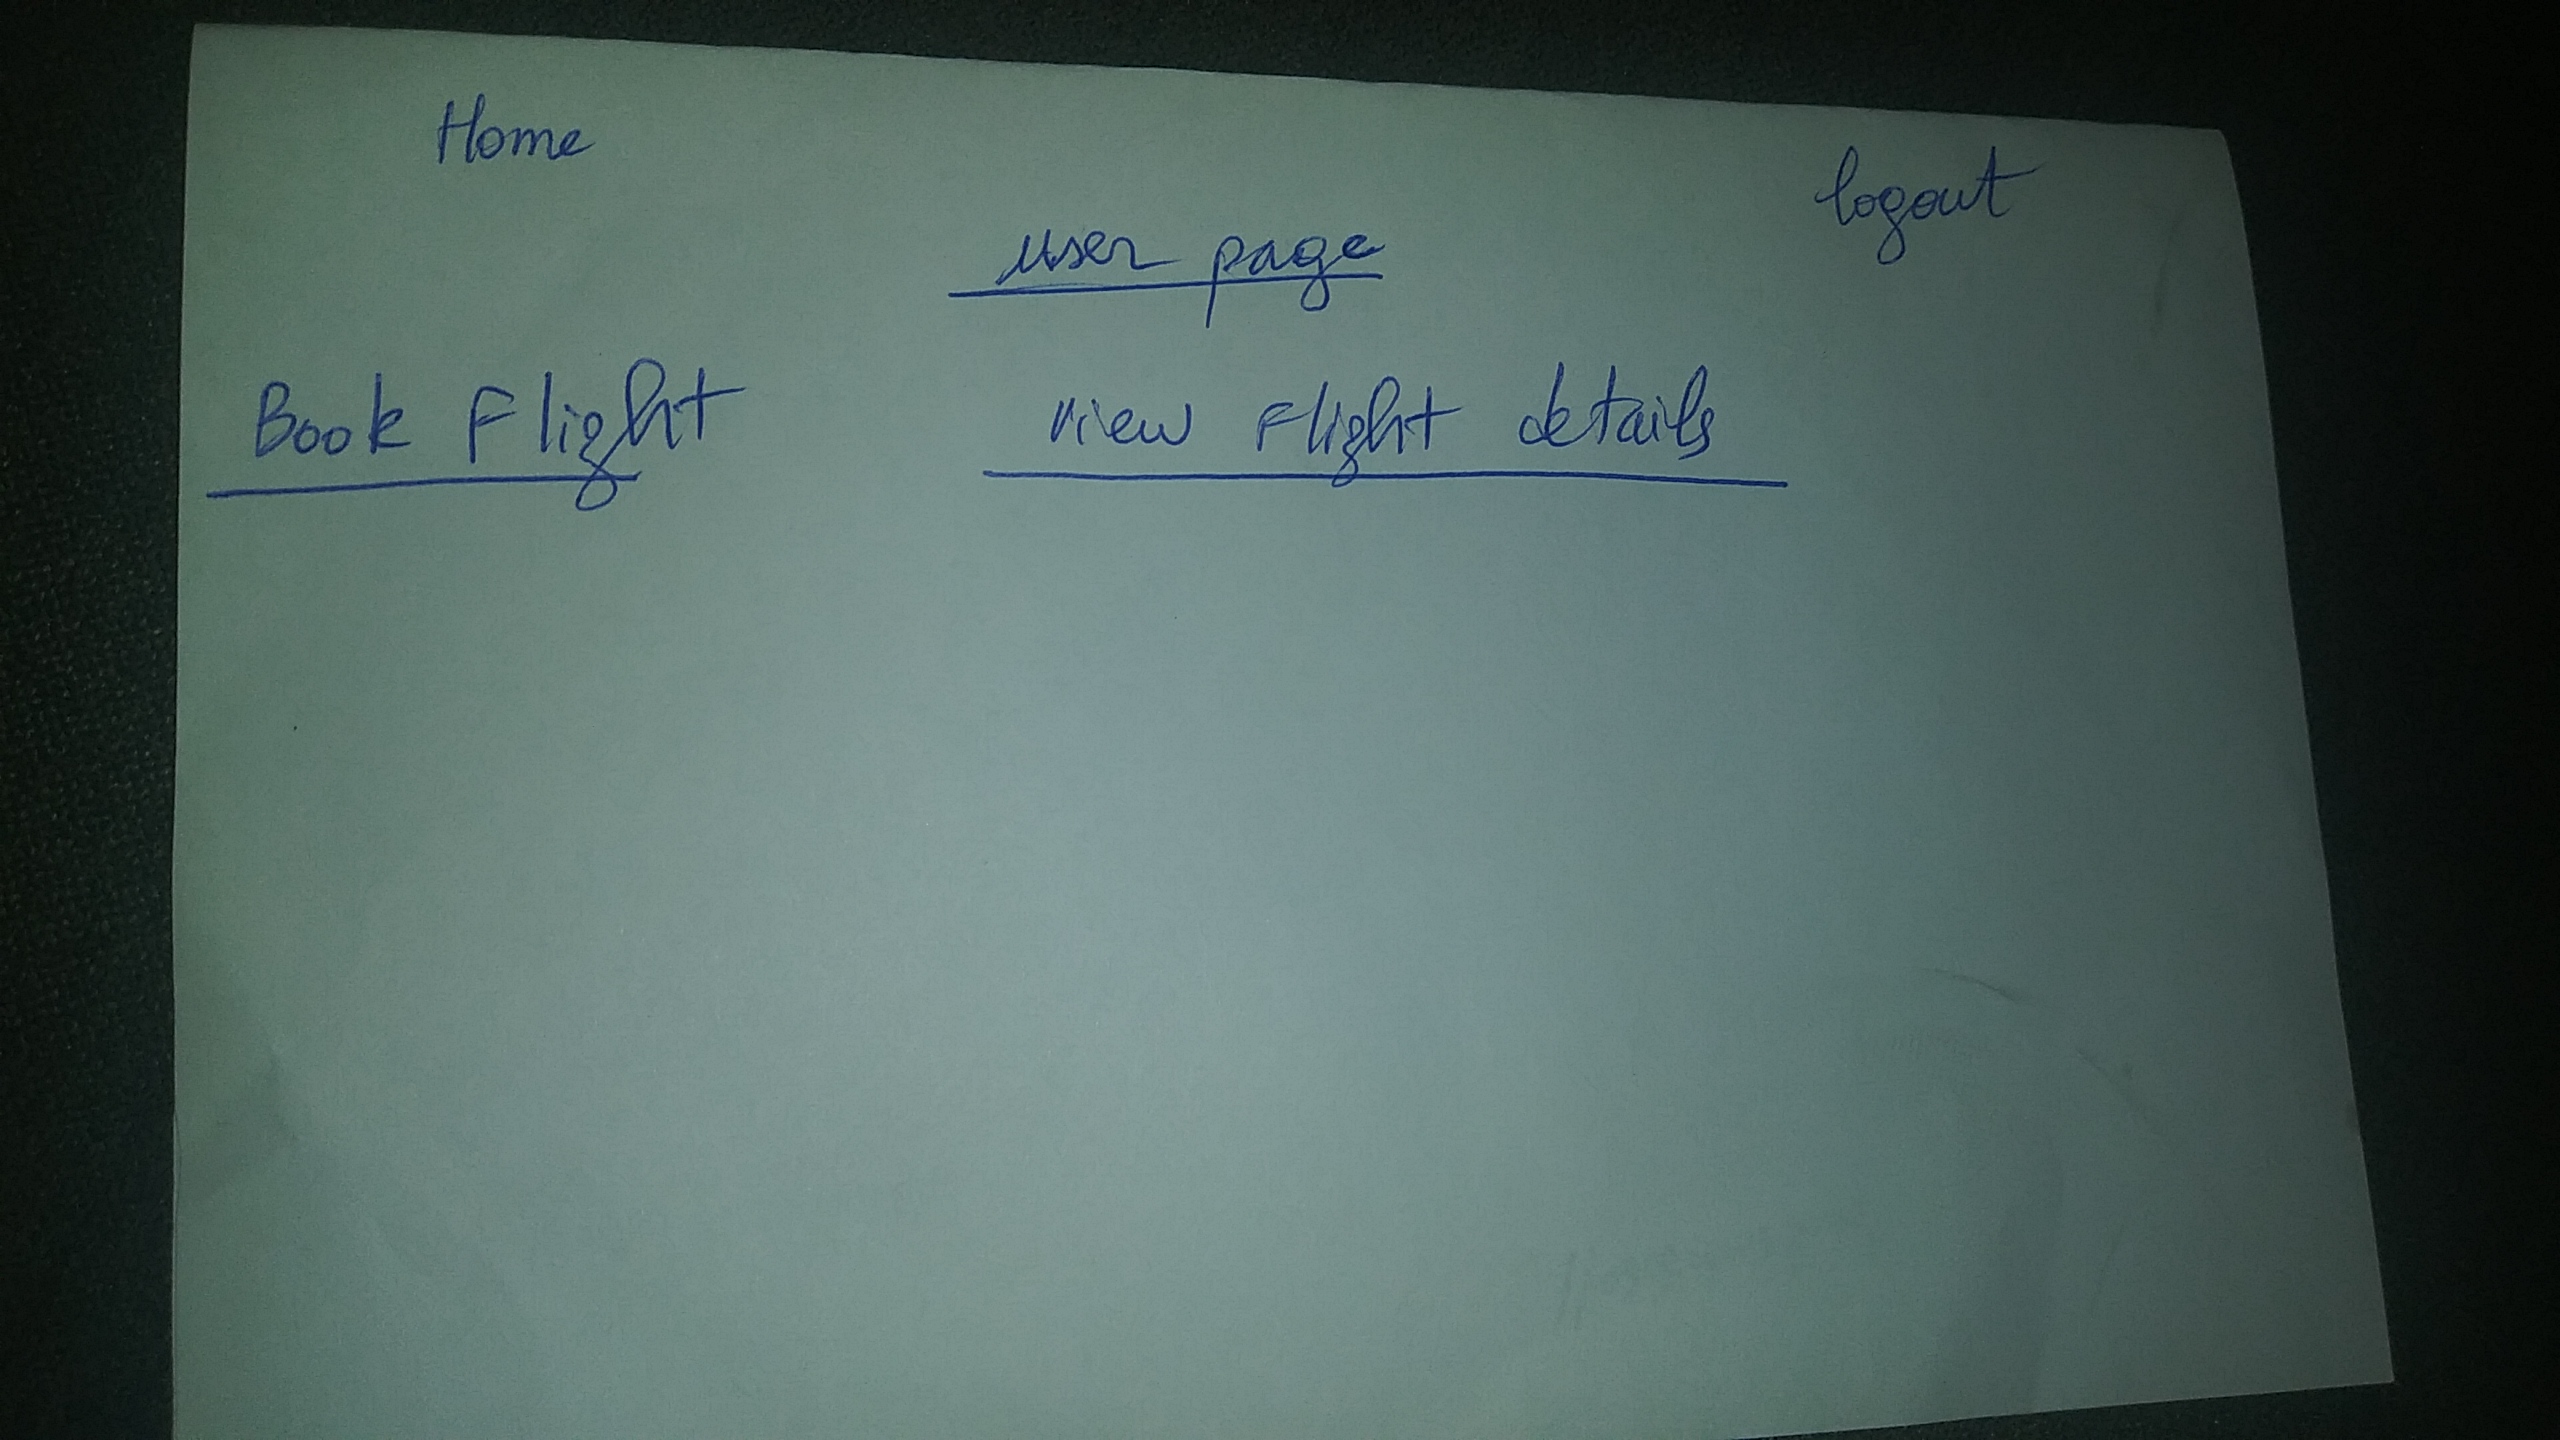 Home
logout
user page
Book Flight
view Flight details